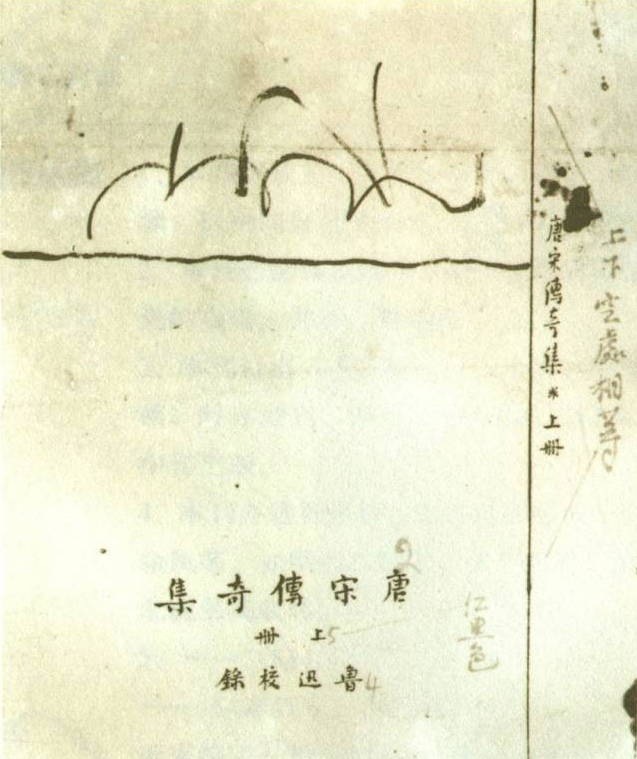 上下空處相等
唐宋傳奇集*上冊
2
唐宋傳奇集
5上冊
4魯迅校錄
红黑色